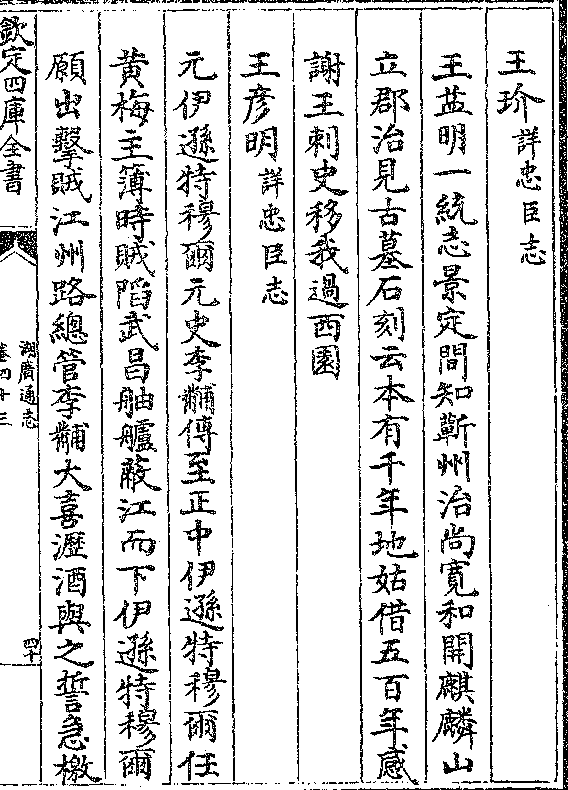 王玠詳忠臣志
王益明一統志景定間知蘄州治尚寛和開麒麟山
立郡治見古墓石刻云本有千年地姑借五百年感
謝王刺史移我過西園
王彦明詳忠臣志
元伊遜特穆爾元史李黼傳至正中伊遜特穆爾任
黄梅主簿時賊䧟武昌舳艫蔽江而下伊遜特穆爾
願出擊賊江州路總管李黼大喜瀝酒與之誓急檄
欽定四庫全書
湖廣通志
卷四十三
四十